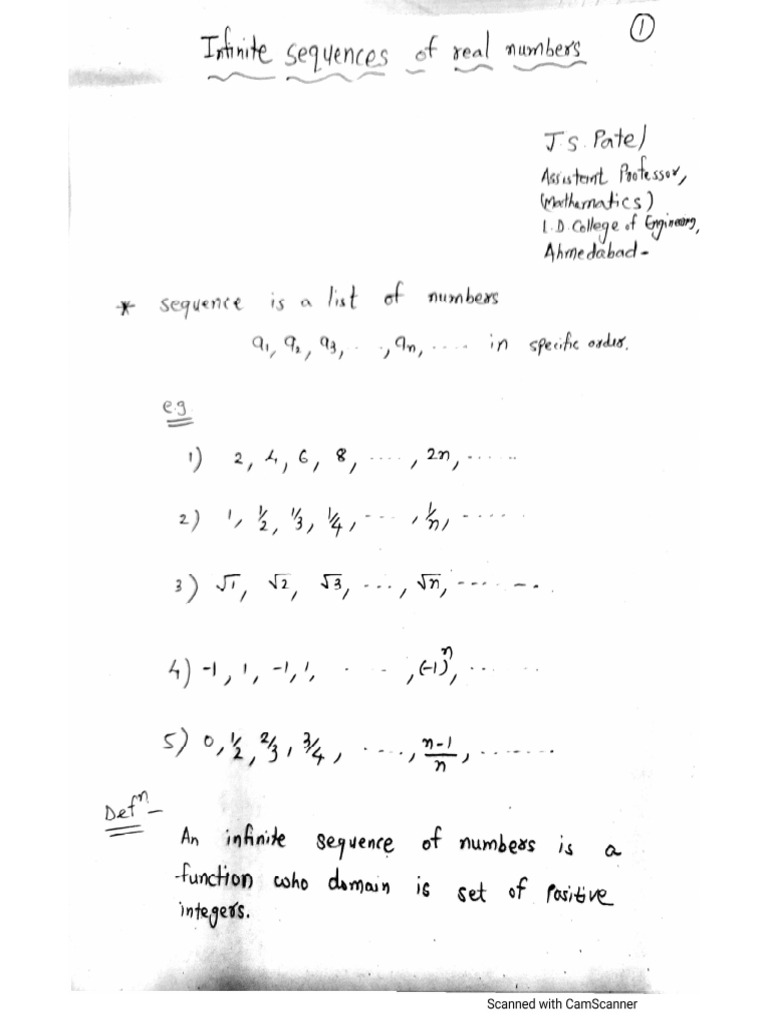 ①
Infinite sequences of real numbers
J.S. Patel
Assistent Professor,
(Mathematics)
L.D. College of Engineering,
Ahmedabad-
* sequence is a list of numbers
a₁, a₂, a₃, ..., aₙ, .... in specific order.
e.g.
1) 2, 4, 6, 8, ...., 2n, ......
2) 1, 1/2, 1/3, 1/4, ..., 1/n, ......
3) √1, √2, √3, ..., √n, .......
4) -1, 1, -1, 1, ...., (-1)ⁿ, ......
5) 0, 1/2, 2/3, 3/4, ...., n-1/n, .......
Defⁿ-
An infinite sequence of numbers is a
function who domain is set of Positive
integers.
Scanned with CamScanner